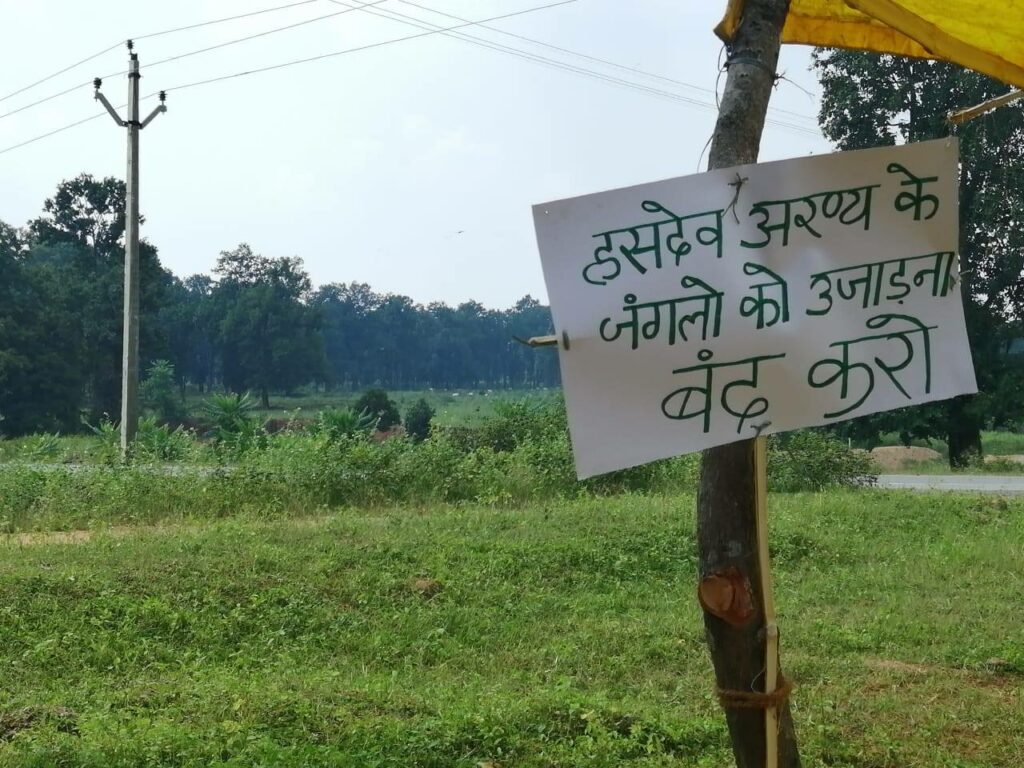 हसदेव अरण्य के
जंगलो को उजाड़ना
बंद करो